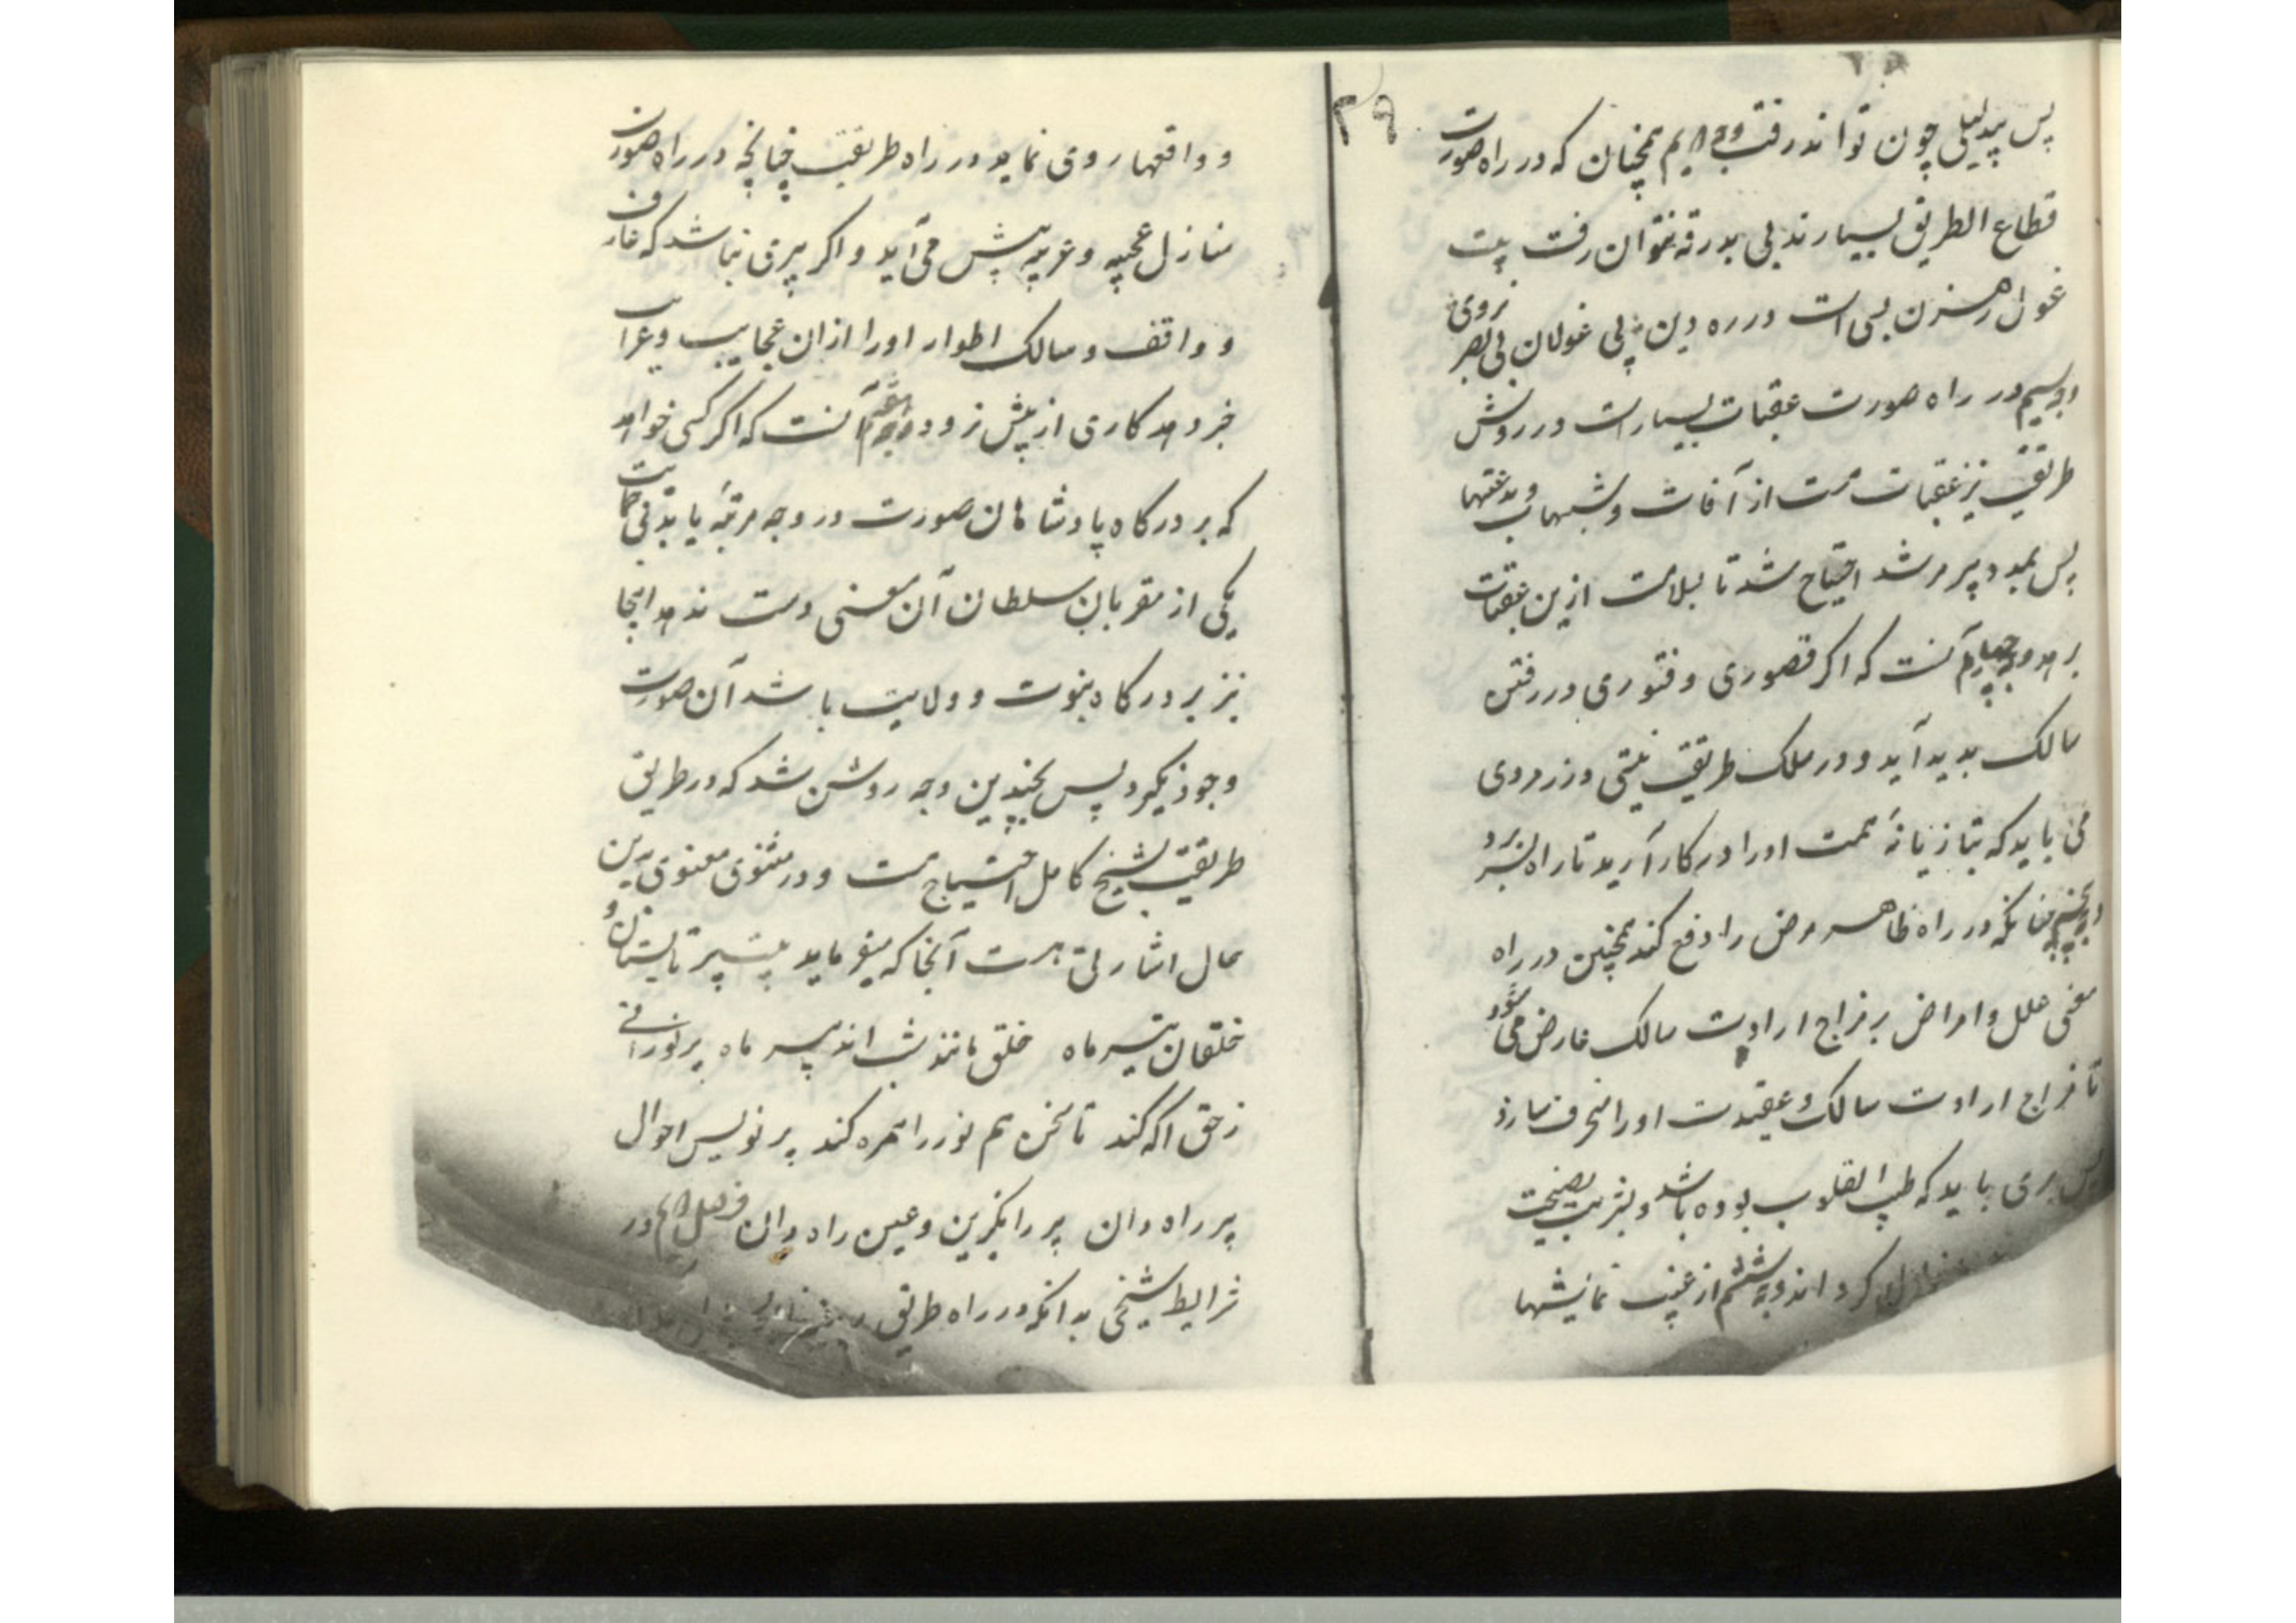 ۲۹
پس بیدلیلی چون تواند رفت وجه دویم همچنان که در راه صورت
قطاع الطریق بسیارند بی بدرقه نتوان رفت بیت
غول رهزن بسی است در ره دین پی غولان بی بصر نروی
وجه سیم در راه صورت عقبات بسیار است در روش
طریقت نیز عقبات هست از آفات و شبهات و بدعتها
پس بمدد پیر مرشد احتیاج شد تا بسلامت ازین عقبات
برهد وجه چهارم آنست که اکر قصوری و فتوری در رفتن
سالک بدید آید و در ملک طریقت نیتی ورزد وی
می باید که بتازیانهٔ همت اورا در کار آرید تا راه بسر برد
وجه پنجم چنانکه در راه ظاهر مرض را دفع کند همچنین در راه
معنی علل و امراض بر مزاج ارادت سالک عارض می شود
تا مزاج ارادت سالک و عقیدت اورا منحرف سازد
پس پیری باید که طب القلوب بوده باشد و بشربت نصیحت
کرداند وجه ششم از غیب نمایشها
و واقعها روی نماید در راه طریقت چنانچه در راه صورت
منازل عجیبه و غریبه پیش می آید و اکر پیری نباشد که عارف
و واقف و سالک اطوار اورا ازان عجایب و غرایب
خبر دهد کاری از پیش نرود وجه هفتم آنست که اکر کسی خواهد
که بر درکاه پادشاهان صورت در وجه مرتبهٔ یابد بی حمایت
یکی از مقربان سلطان آن معنی دست ندهد اینجا
نیز بر درکاه نبوت و ولایت باشد آن صورت
وجود نکیرد پس بچندین وجه روشن شد که در طریق
طریقت بشیخ کامل احتیاج هست و در مثنوی معنوی بدین
حال اشارتی هست آنجا که میفرماید بیت پیر تابستان و
خلقان تیر ماه خلق مانند شب اند پیر ماه پیر نورانی
ز حق اکه کند تا سخن هم نور را همره کند بر نویس احوال
پیر راه دان پیر را بکزین و عین راه دان فصل دویم در
شرایط شیخی بدانکه در راه طریق